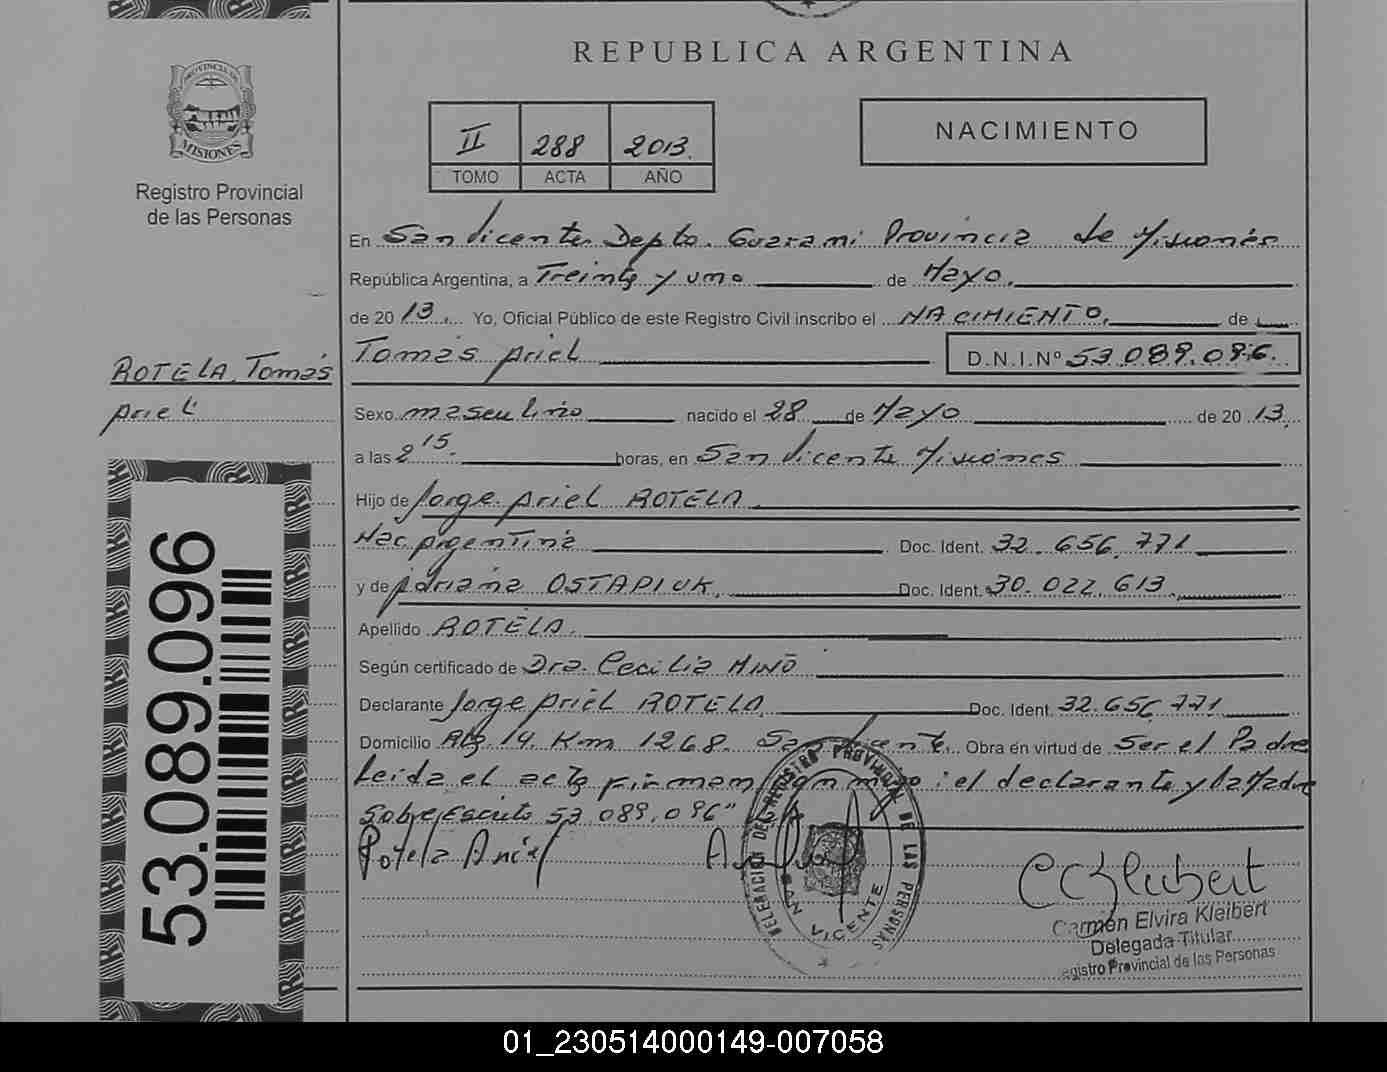 REPUBLICA ARGENTINA
PROVINCIA DE
MISIONES
Registro Provincial
de las Personas
II 288 2013.
TOMO ACTA AÑO
NACIMIENTO
En San Vicente, Depto. Guarami Provincia de Misiones
República Argentina, a Treinta y uno de Mayo.
de 2013. Yo, Oficial Público de este Registro Civil inscribo el NACIMIENTO. de
Tomás Ariel D.N.I.Nº 53.089.096.
ROTELA, Tomás
Ariel
Sexo masculino nacido el 28 de Mayo de 2013.
a las 2 15. horas, en San Vicente Misiones
Hijo de Jorge Ariel ROTELA
Nac. Argentina Doc. Ident. 32.656.771
y de Adriana OSTAPIUK, Doc. Ident. 30.022.613.
Apellido ROTELA.
Según certificado de Dra. Cecilia MIÑO
Declarante Jorge Ariel ROTELA, Doc. Ident. 32.656.771
Domicilio Alg. 14. Km 1268. San Vicente. Obra en virtud de Ser el Padre
Leida el acta firman conmigo: el declarante y la Madre
Sobreescrito 53.089.096"
Rotela Ariel
DELEGACION DEL REGISTRO PROVINCIAL DE LAS PERSONAS
SAN VICENTE
Carmen Elvira Kleibert
Delegada Titular
Registro Provincial de las Personas
53.089.096
01_230514000149-007058